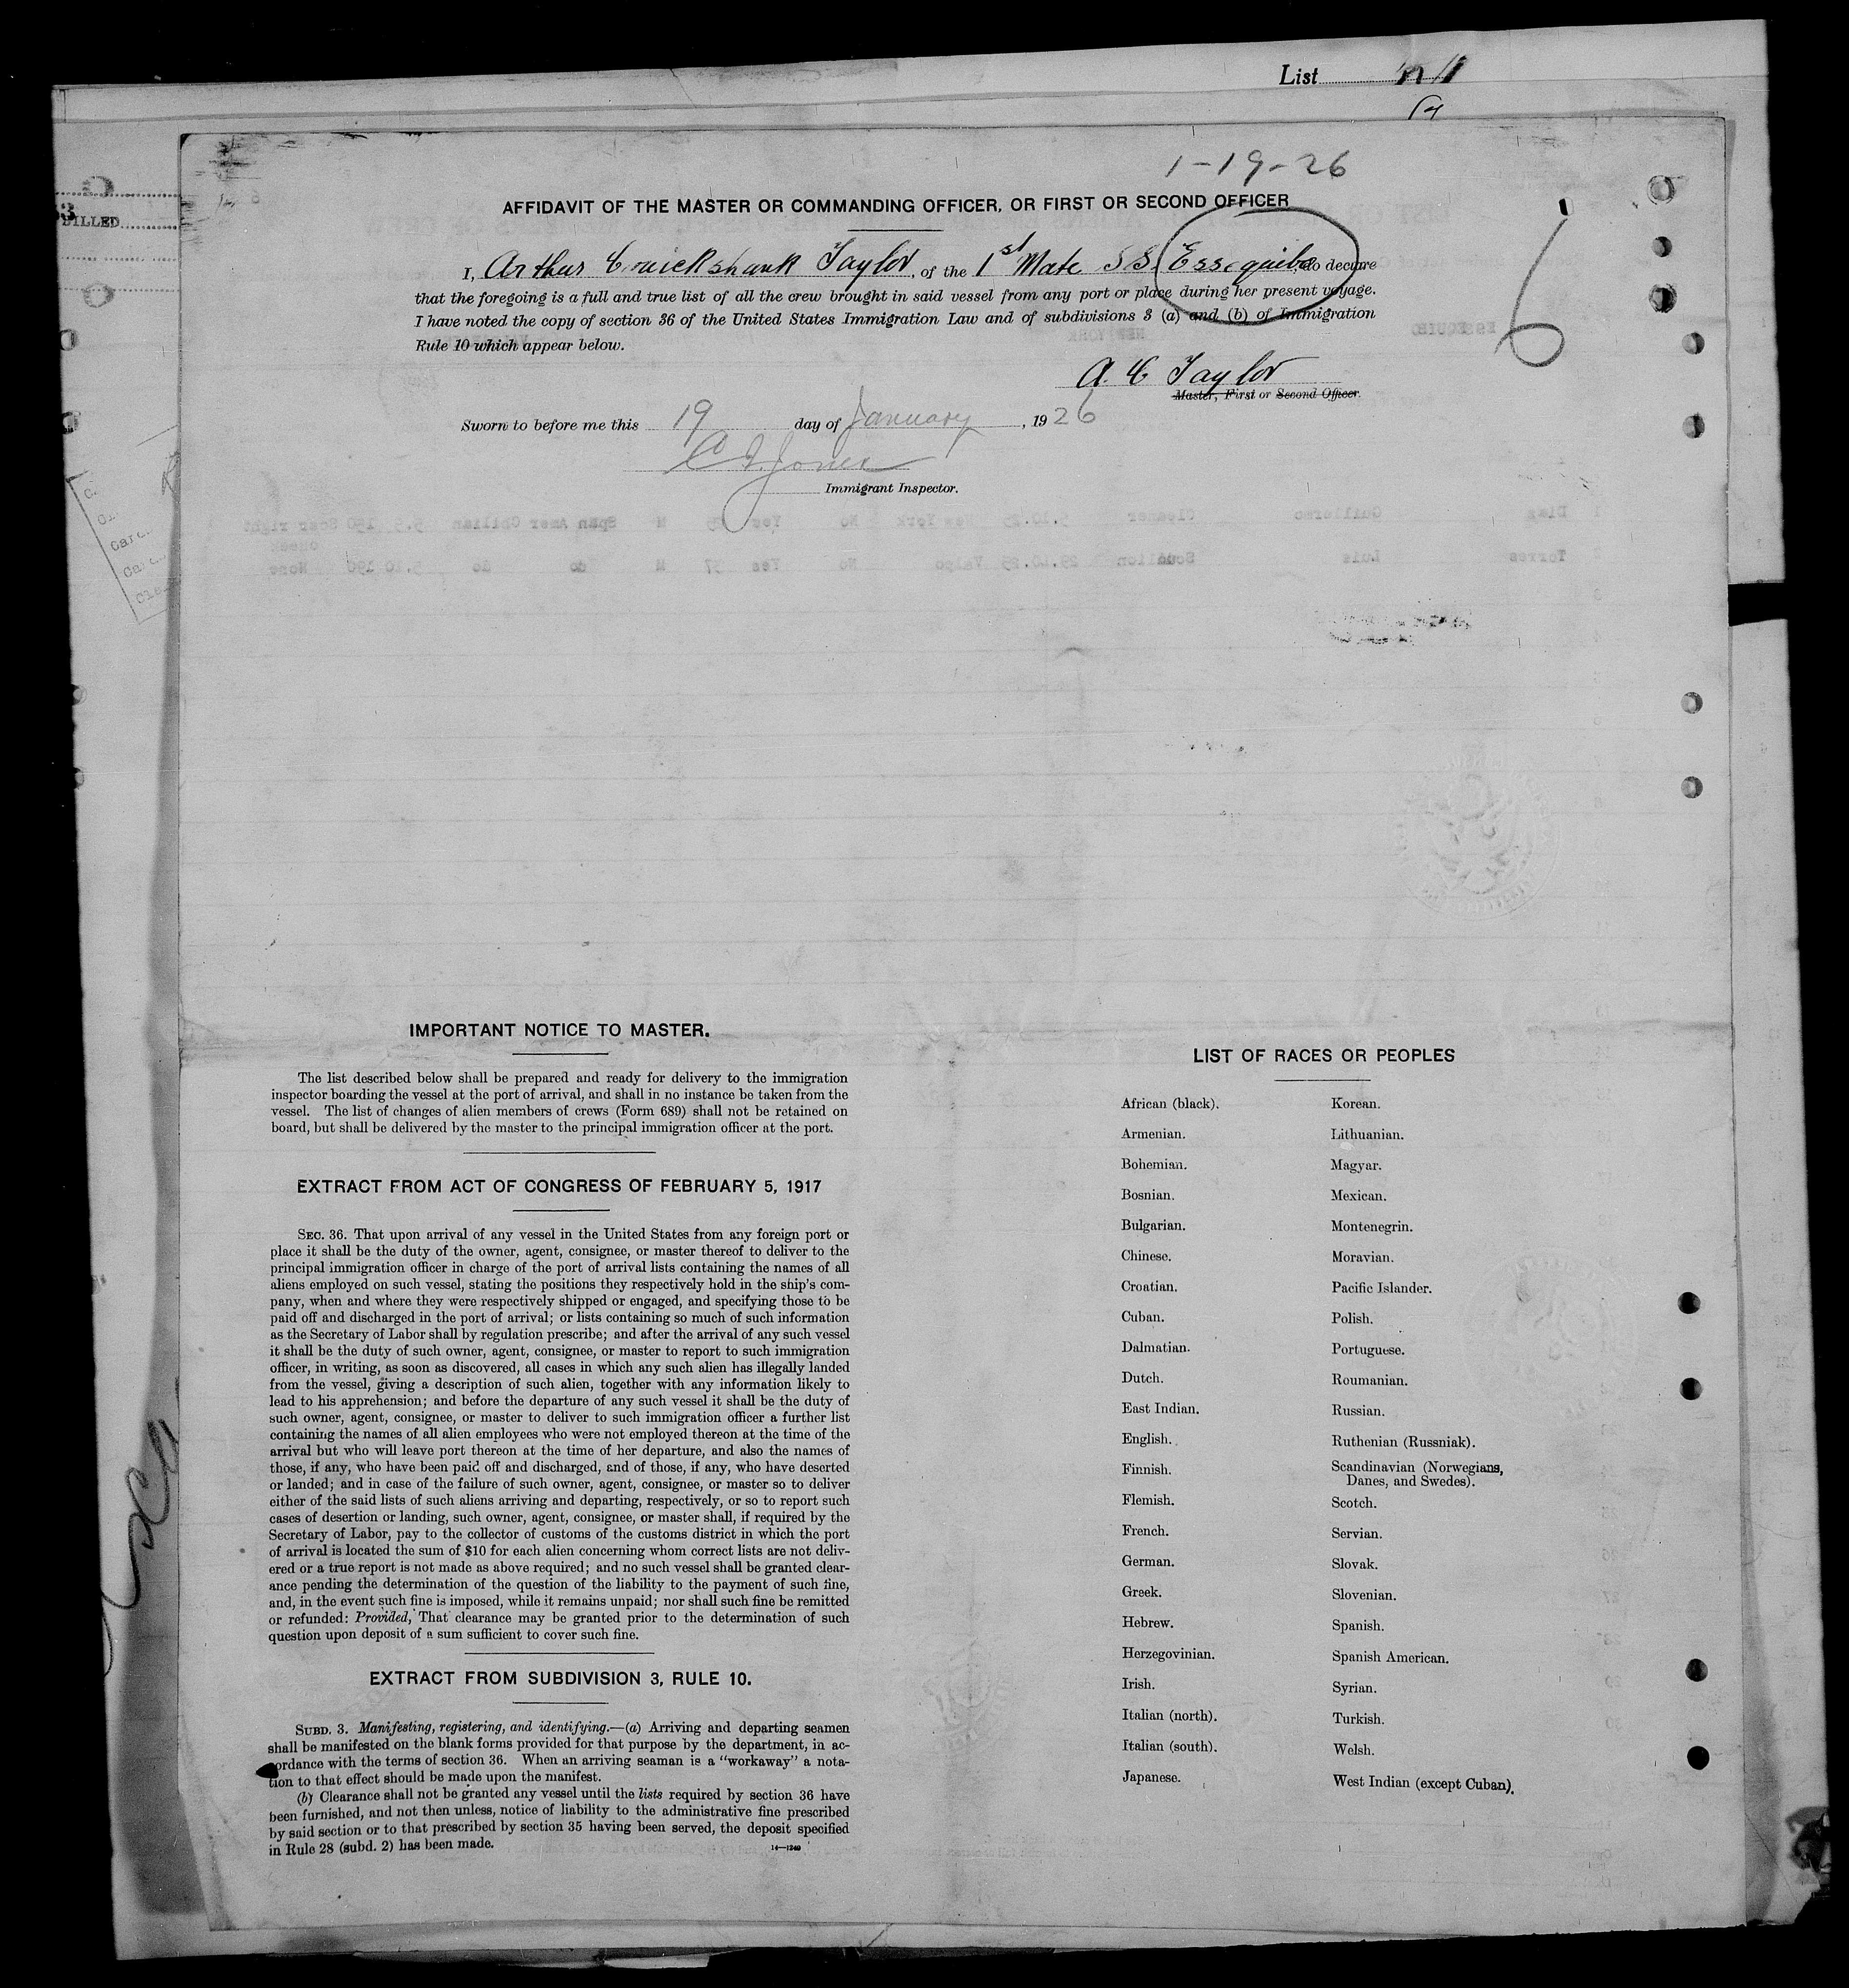 List
1-19-26
BILLED
AFFIDAVIT OF THE MASTER OR COMMANDING OFFICER, OR FIRST OR SECOND OFFICER
I, Arthur Cruickshank Taylor, of the 1st Mate SS Essequibo do declare
that the foregoing is a full and true list of all the crew brought in said vessel from any port or place during her present voyage.
I have noted the copy of section 36 of the United States Immigration Law and of subdivisions 3 (a) and (b) of Immigration
Rule 10 which appear below.
6
A. C Taylor
Master, First or Second Officer.
Sworn to before me this 19 day of January, 1926
Jones
Immigrant Inspector.
IMPORTANT NOTICE TO MASTER.
The list described below shall be prepared and ready for delivery to the immigration
inspector boarding the vessel at the port of arrival, and shall in no instance be taken from the
vessel. The list of changes of alien members of crews (Form 689) shall not be retained on
board, but shall be delivered by the master to the principal immigration officer at the port.
EXTRACT FROM ACT OF CONGRESS OF FEBRUARY 5, 1917
SEC. 36. That upon arrival of any vessel in the United States from any foreign port or
place it shall be the duty of the owner, agent, consignee, or master thereof to deliver to the
principal immigration officer in charge of the port of arrival lists containing the names of all
aliens employed on such vessel, stating the positions they respectively hold in the ship's com-
pany, when and where they were respectively shipped or engaged, and specifying those to be
paid off and discharged in the port of arrival; or lists containing so much of such information
as the Secretary of Labor shall by regulation prescribe; and after the arrival of any such vessel
it shall be the duty of such owner, agent, consignee, or master to report to such immigration
officer, in writing, as soon as discovered, all cases in which any such alien has illegally landed
from the vessel, giving a description of such alien, together with any information likely to
lead to his apprehension; and before the departure of any such vessel it shall be the duty of
such owner, agent, consignee, or master to deliver to such immigration officer a further list
containing the names of all alien employees who were not employed thereon at the time of the
arrival but who will leave port thereon at the time of her departure, and also the names of
those, if any, who have been paid off and discharged, and of those, if any, who have deserted
or landed; and in case of the failure of such owner, agent, consignee, or master so to deliver
either of the said lists of such aliens arriving and departing, respectively, or so to report such
cases of desertion or landing, such owner, agent, consignee, or master shall, if required by the
Secretary of Labor, pay to the collector of customs of the customs district in which the port
of arrival is located the sum of $10 for each alien concerning whom correct lists are not deliv-
ered or a true report is not made as above required; and no such vessel shall be granted clear-
ance pending the determination of the question of the liability to the payment of such fine,
and, in the event such fine is imposed, while it remains unpaid; nor shall such fine be remitted
or refunded: Provided, That clearance may be granted prior to the determination of such
question upon deposit of a sum sufficient to cover such fine.
EXTRACT FROM SUBDIVISION 3, RULE 10.
SUBD. 3. Manifesting, registering, and identifying.—(a) Arriving and departing seamen
shall be manifested on the blank forms provided for that purpose by the department, in ac-
cordance with the terms of section 36. When an arriving seaman is a "workaway" a nota-
tion to that effect should be made upon the manifest.
(b) Clearance shall not be granted any vessel until the lists required by section 36 have
been furnished, and not then unless, notice of liability to the administrative fine prescribed
by said section or to that prescribed by section 35 having been served, the deposit specified
in Rule 28 (subd. 2) has been made.
14—1240
LIST OF RACES OR PEOPLES
African (black).
Armenian.
Bohemian.
Bosnian.
Bulgarian.
Chinese.
Croatian.
Cuban.
Dalmatian.
Dutch.
East Indian.
English.
Finnish.
Flemish.
French.
German.
Greek.
Hebrew.
Herzegovinian.
Irish.
Italian (north).
Italian (south).
Japanese.
Korean.
Lithuanian.
Magyar.
Mexican.
Montenegrin.
Moravian.
Pacific Islander.
Polish.
Portuguese.
Roumanian.
Russian.
Ruthenian (Russniak).
Scandinavian (Norwegians,
Danes, and Swedes).
Scotch.
Servian.
Slovak.
Slovenian.
Spanish.
Spanish American.
Syrian.
Turkish.
Welsh.
West Indian (except Cuban).